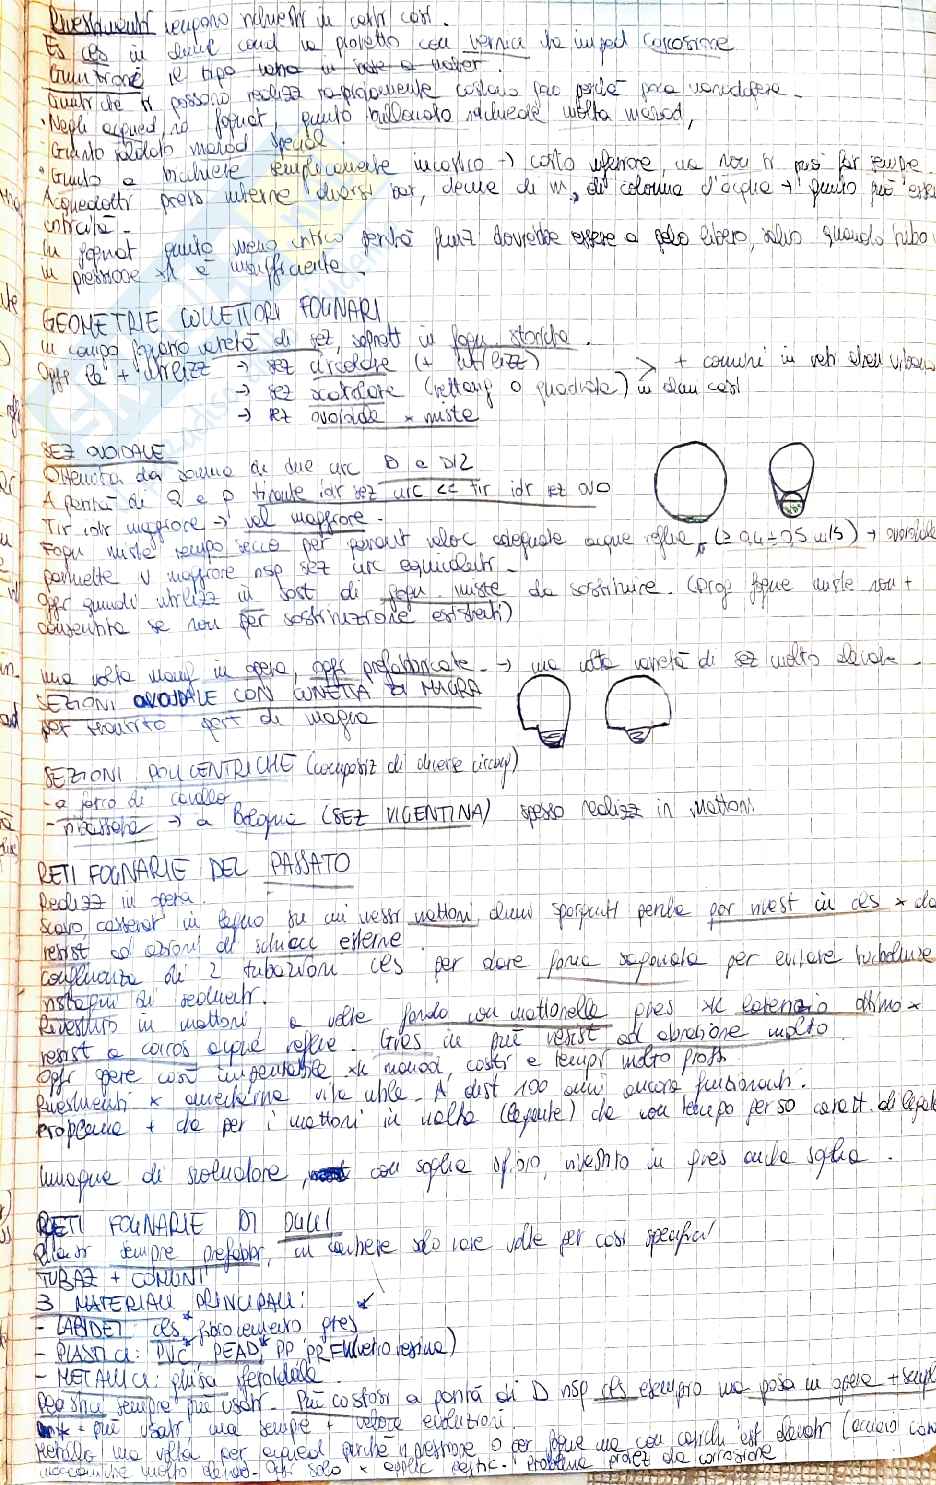 Rivestimenti vengono richiesti in certi casi.
Es cls in alcune cond va protetto con vernice da imped corrosione
Giunzione il tipo
Giunti che si possono realizz rapidamente costano però perdite
Negli acqued, no fognat, giunto bullonato richiede molta manod,
Giunto saldato manod special.
Giunto a bicchiere semplicemente incastro → costo inferiore, ma non si può far sempre
Acquedotti press interne diversi bar, decine di m, di colonna d'acqua → giunto può essere
criticità.
In fognat giunto meno critico perchè funz dovrebbe essere a pelo libero, salvo quando tubo
in pressione xk è insufficiente.
GEOMETRIE COLLETTORI FOGNARI
In campo fognario varietà di sez, sopratt in fogn storiche.
Oggi le + utilizz → sez circolare (+ utilizz) > + comuni in reti aree urbane
→ sez scatolare (rettang o quadrata) in alcuni casi
→ sez ovoidale x miste
SEZ OVOIDALE
Ottenuta da somma di due circ D e D/2
A parità di Q e p tirante idr sez circ << tir idr sez OVO
Tir idr maggiore → vel maggiore.
Fogn miste tempo secco per garant veloc adeguate acque reflue (≥ 0,4 ÷ 0,5 m/s) → ovoidale
permette v maggiore risp sez circ equivalenti.
Oggi quindi utilizz in sost di fogn miste da sostituire. (Prog fogne miste non +
consentita se non per sostituzione esistenti)
Una volta manuf in opera, oggi prefabbricate. → una volta varietà di sez molto elevata.
SEZIONI OVOIDALE CON CUNETTA DI MAGRA
per transito port di magra
SEZIONI POLICENTRICHE (composiz di diverse circonf)
- a ferro di cavallo
- ribassata → a Bologna (SEZ VIGENTINA) spesso realizz in mattoni.
RETI FOGNARIE DEL PASSATO
Realizz in opera.
Scavo, casserat in legno su cui messi mattoni, alcuni sporgenti perchè poi rivest in cls x da
resist ad azioni di schiacc esterne.
Confluenza di 2 tubazioni cls per dare forma sagomata per evitare turbolenze
ristagni di sedimenti.
Rivestito in mattoni, a volte fondo con mattonella gres xk laterizio ottimo x
resist a corros acque reflue. Gres in più resist ad abrasione molto.
Oggi opere così impensabile xk manod, costi e tempi molto
Rivestimenti x aumentarne vita utile. A dist 100 anni ancora funzionanti.
Problema + che per i mattoni in malta (legante) che con tempo perso caratt. di legante
Immagine di scolmatore, con soglia sfioro, rivestito in gres anche soglia.
RETI FOGNARIE DI OGGI
sempre prefabbr, in cantiere solo rare volte per casi specifici
TUBAZ + COMUNI
3 MATERIALI PRINCIPALI:
- LAPIDEI: cls, fibrocemento, gres
- PLASTICI: PVC, PEAD, PP, PRFV (vetro resina)
- METALLICI: ghisa sferoidale.
Plastici sempre più usati. Più costosi a parità di D risp cls esempio ma posa in opera + sempl
più usati, ma sempre + veloce evoluzioni
Metallo una volta per acqued perchè in pressione o per fogne ma con carichi est elevati (acciaio
molto elevato. Oggi solo x applic Problema protez da corrosione